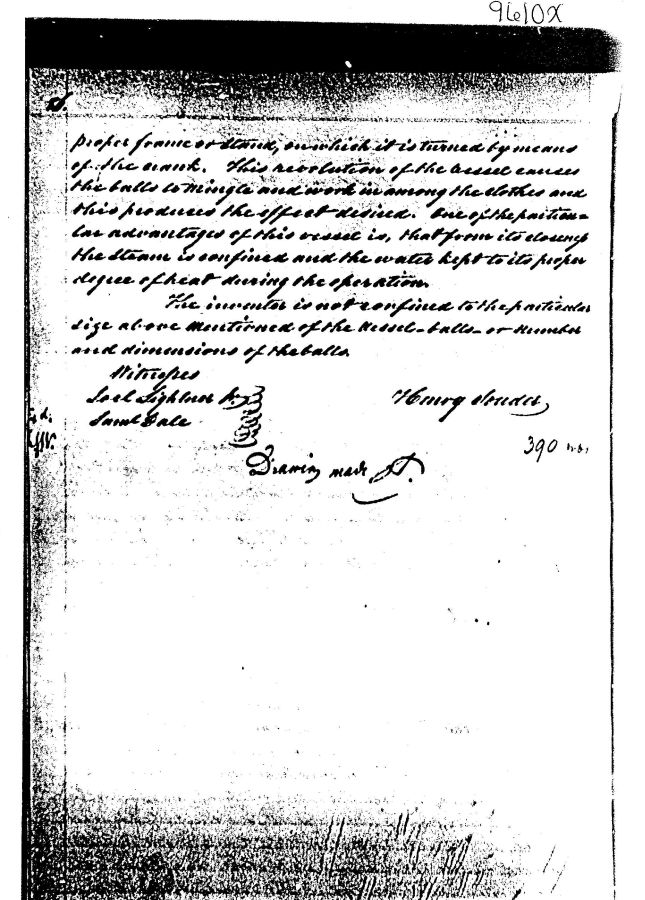 9610X
proper frame or stand, on which it is turned by means
of the crank. This revolution of the vessel causes
the balls to mingle and work in among the clothes and
this produces the effect desired. One of the particu=
lar advantages of this vessel is, that from its closeness
the steam is confined and the water kept to its proper
degree of heat during the operation.
The inventor is not confined to the particular
size above mentioned of the vessel-balls- or number
and dimensions of the balls.
Witnesses
Joel Lightner Henry Souder
Saml Dale
390
Drawing made